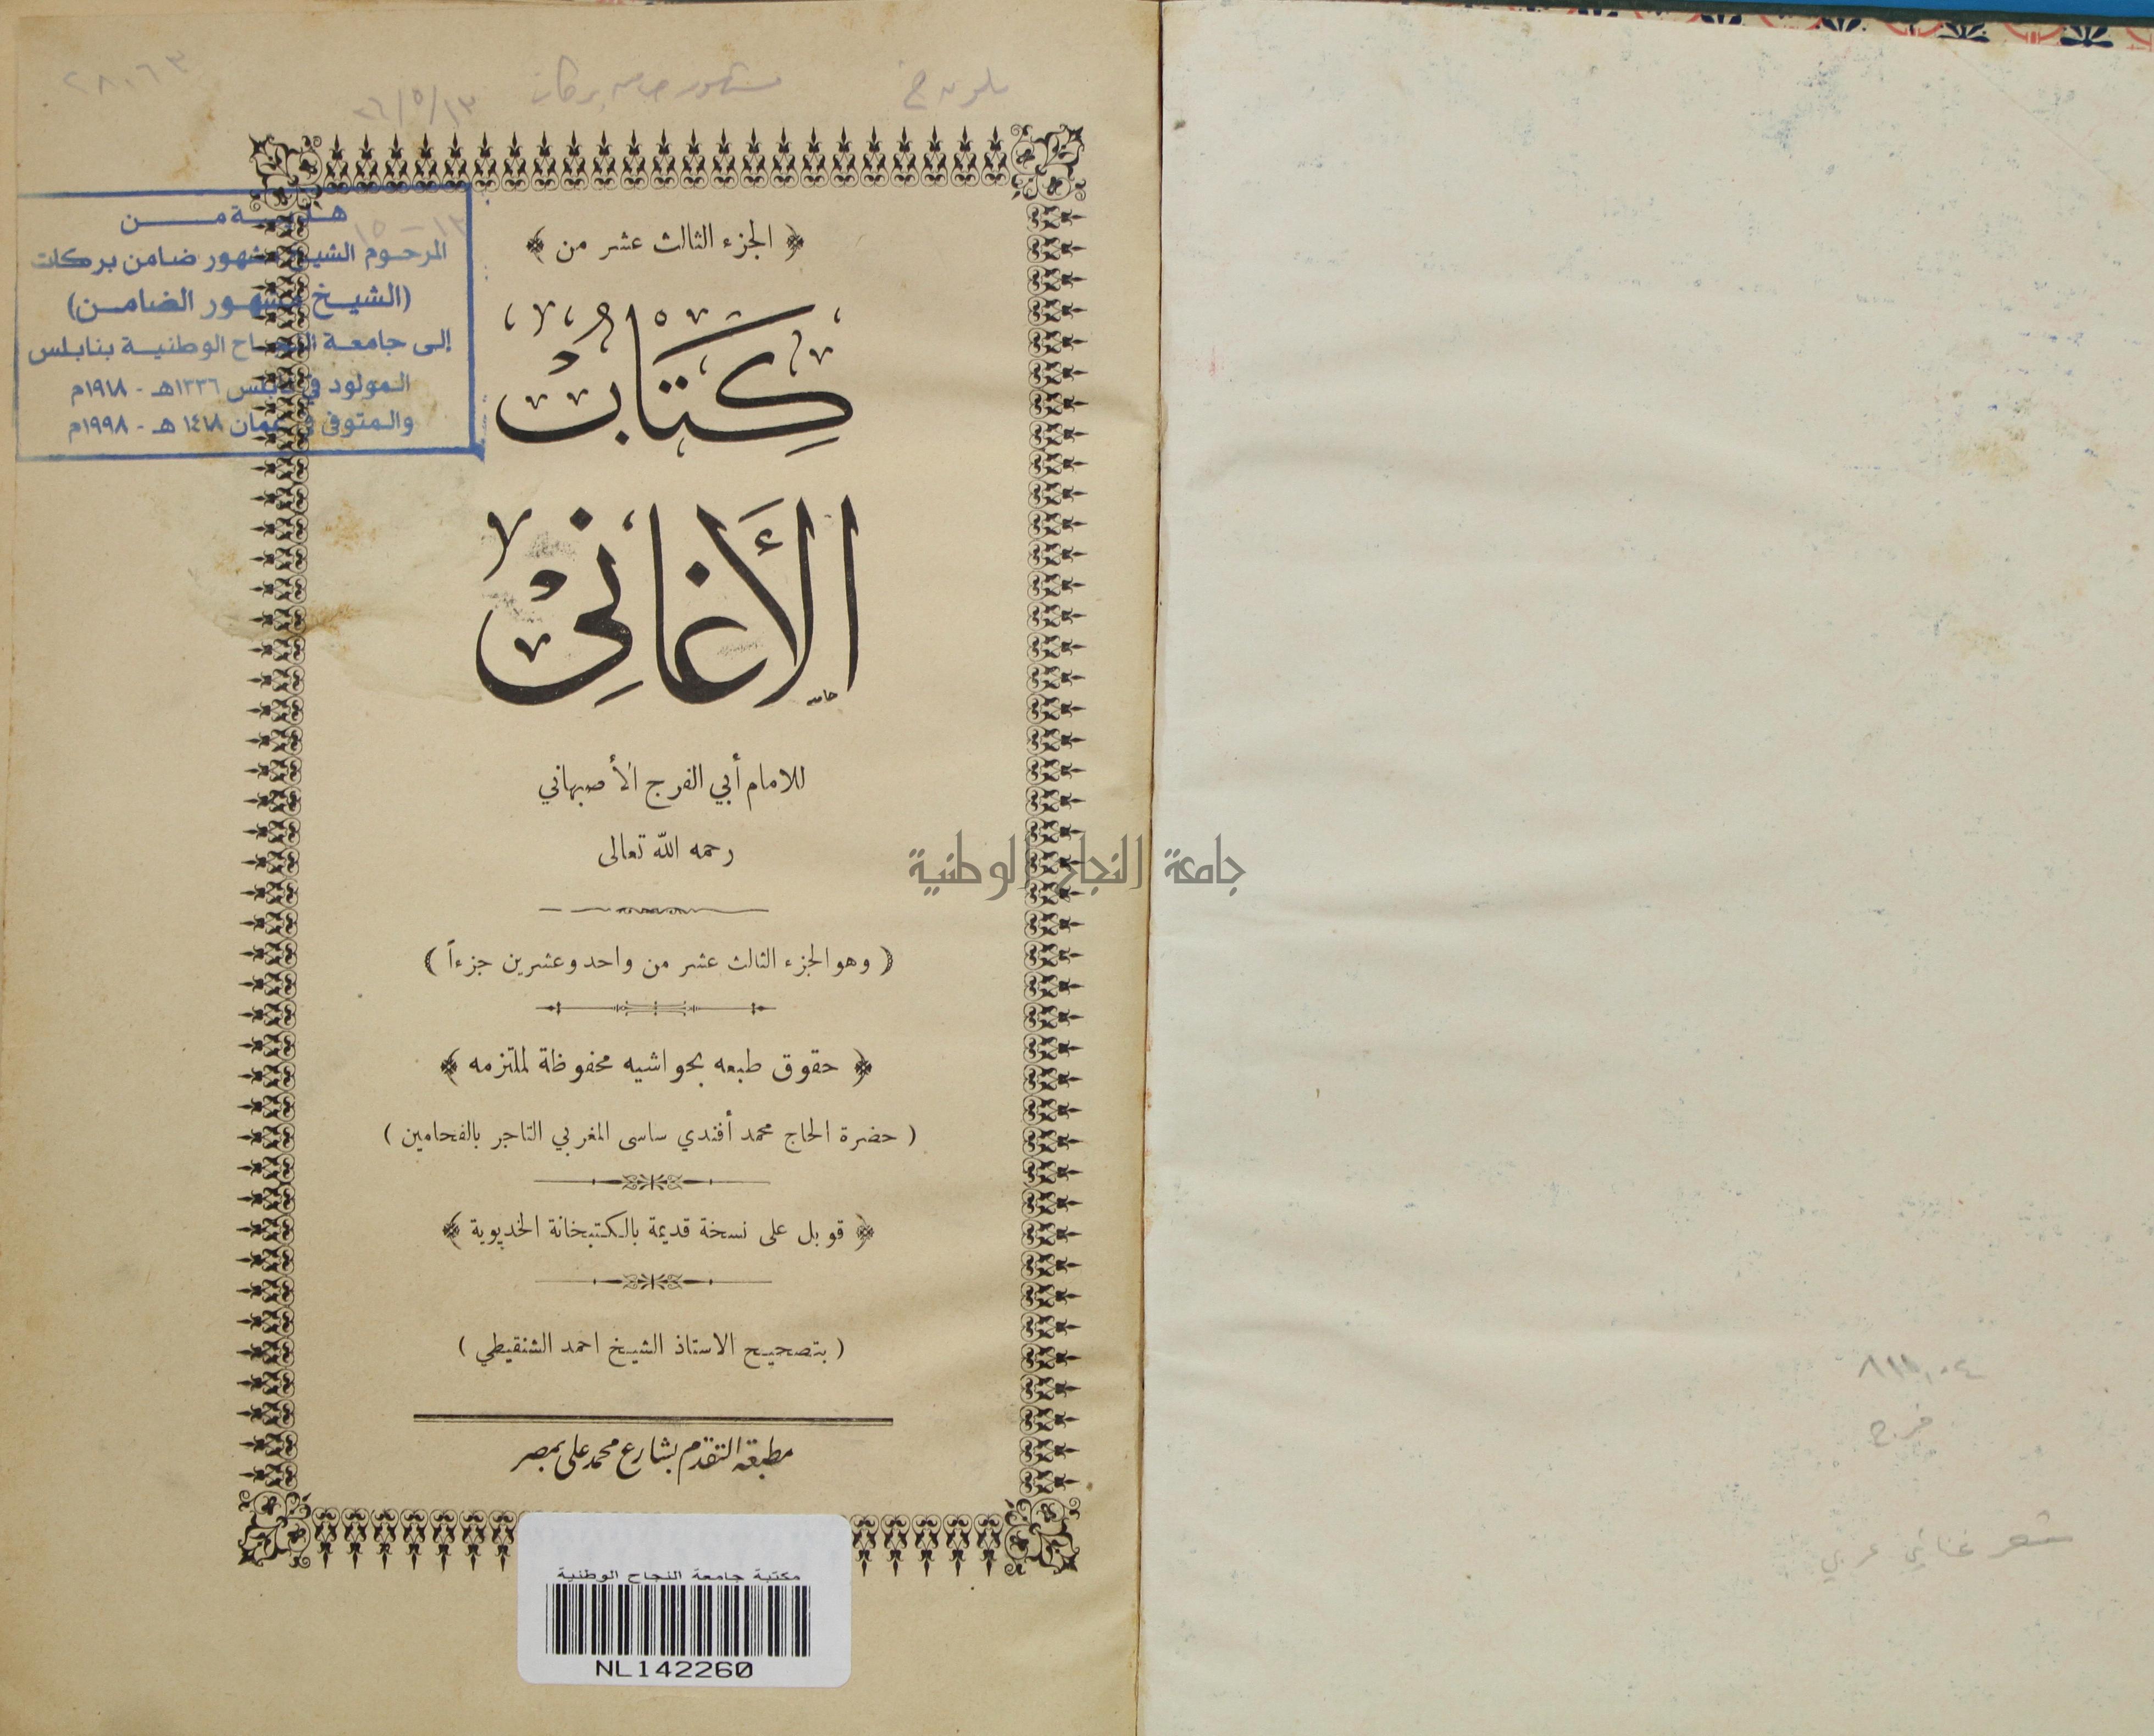 ٢٨٠٦٣
مشهور ضامن بركات
هدية من
المرحوم الشيخ مشهور ضامن بركات
(الشيخ مشهور الضامن)
إلى جامعة النجاح الوطنية بنابلس
المولود في نابلس ١٣٣٦هـ - ١٩١٨م
والمتوفى في عمان ١٤١٨ هـ - ١٩٩٨م
﴿ الجزء الثالث عشر من ﴾
كِتَابُ
الأَغَانِي
حامد
للامام أبي الفرج الأصبهاني
رحمه الله تعالى
جامعة النجاح الوطنية
( وهو الجزء الثالث عشر من واحد وعشرين جزءاً )
﴿ حقوق طبعه بحواشيه محفوظة لملتزمه ﴾
( حضرة الحاج محمد أفندي ساسى المغربي التاجر بالفحامين )
﴿ قوبل على نسخة قديمة بالكتبخانة الخديوية ﴾
( بتصحيح الاستاذ الشيخ احمد الشنقيطي )
مطبعة التقدم بشارع محمد على بمصر
مكتبة جامعة النجاح الوطنية
NL142260
فرج
شعر غنائي عربي